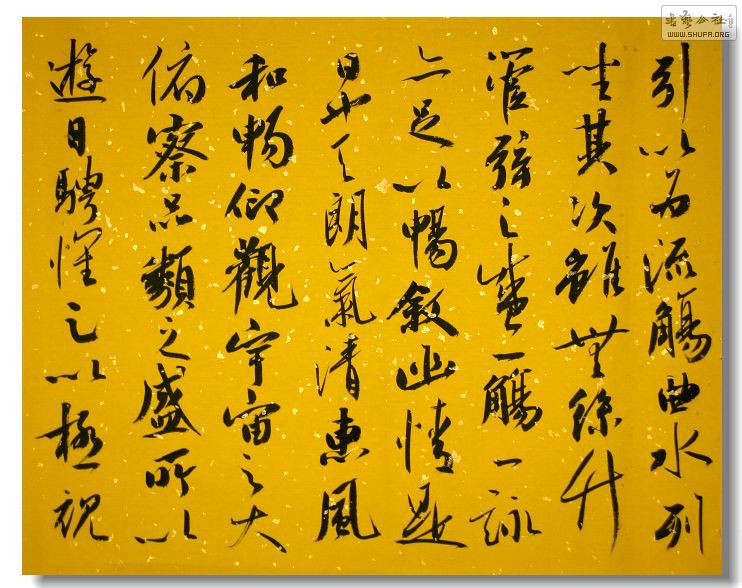 引以為流觴曲水列
坐其次雖無絲竹
管弦之盛一觴一詠
亦足以暢敘幽情是
日也天朗氣清惠風
和暢仰觀宇宙之大
俯察品類之盛所以
遊目騁懷足以極視
书艺公社
WWW.SHUFA.ORG